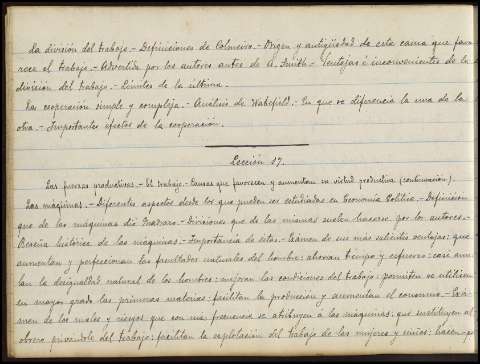 La división del trabajo.- Definiciones de Colmeiro.- Origen y antigüedad de esta causa que favo
rece el trabajo.- Advertida por los autores antes de A. Smith.- Ventajas é inconvenientes de la
división del trabajo.- Límites de la última.-
La cooperación simple y compleja.- Análisis de Wakefield.- En que se diferencia la una de la
otra.- Importantes efectos de la cooperación.
Lección 17.
Las fuerzas productivas.- El trabajo.- Causas que favorecen y aumentan su virtud productiva (continuación).
Las máquinas.- Diferentes aspectos desde los que pueden ser estudiadas en Economía Política.- Definición
que de las máquinas dió.- Divisiones que de las mismas suelen hacerse por los autores.-
Reseña histórica de las máquinas.- Importancia de éstas.- Exámen de sus más salientes ventajas: que
aumentan y perfeccionan las facultades naturales del hombre: ahorran tiempo y esfuerzo:
lan la desigualdad natural de los hombres: mejoran las condiciones del trabajo: permiten se utilicen
en mayor grado las primeras materias: facilitan la producción y aumentan el consumo.- Exá-
men de los males y riesgos que con más frecuencia se atribuyen á las máquinas: que sustituyen al
obrero privándole del trabajo: facilitan la explotación del trabajo de las mujeres y niños: hacen